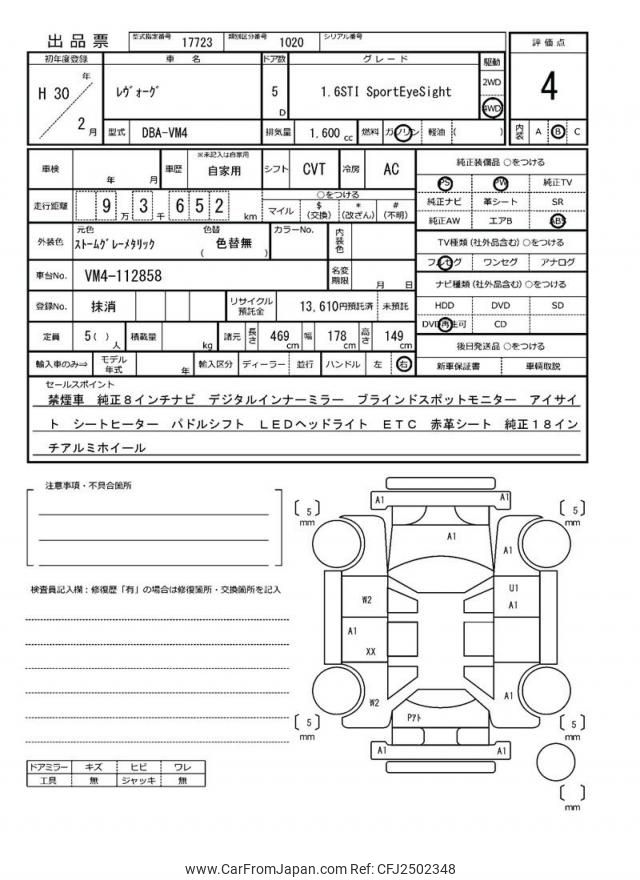 出品票 型式指定番号 17723 類別区分番号 1020 シリアル番号
初年度登録 車 名 ドア数 グレード 駆動 評価点
H 30 年 2 月 ﾚヴｫｰｸﾞ 5 D 1.6STI SportEyeSight 2WD 4WD 4
型式 DBA-VM4 排気量 1.600 cc 燃料 ガソリン 軽油 ( ) 内装 A B C
車検 年 月 車歴 ※未記入は自家用 自家用 シフト CVT 冷房 AC
走行距離 9 万 3 千 6 5 2 km ○をつける マイル $ (交換) * (改ざん) # (不明)
外装色 元色 ｽﾄｰﾑｸﾞﾚｰﾒﾀﾘｯｸ 色替 ( 色替無 ) カラーNo. 内装色
車台No. VM4-112858 名変期限 月 日
登録No. 抹消 リサイクル預託金 13,610円預託済 未預託
定員 5( ) 人 積載量 kg 諸元 長さ 469 cm 幅 178 cm 高さ 149 cm
輸入車のみ⇒ モデル年式 年 輸入区分 ディーラー 並行 ハンドル 左 右
純正装備品 ○をつける
PS PW 純正TV
純正ナビ 革シート SR
純正AW エアB ABS
TV種類(社外品含む) ○をつける
フルセグ ワンセグ アナログ
ナビ種類(社外品含む) ○をつける
HDD DVD SD
DVD再生可 CD
後日発送品 ○をつける
新車保証書 車輌取説
セールスポイント
禁煙車 純正8インチナビ デジタルインナーミラー ブラインドスポットモニター アイサイ
ト シートヒーター パドルシフト LEDヘッドライト ETC 赤革シート 純正18イン
チアルミホイール
注意事項・不具合箇所
検査員記入欄：修復歴「有」の場合は修復箇所・交換箇所を記入
ドアミラー キズ ヒビ ワレ
工具 無 ジャッキ 無
5 mm A1 A1 5 mm
A1 A1
W2 U1
A1
A1
XX
W2 A1
Pｱﾄ
5 mm A1 A1 5 mm
mm
www.CarFromJapan.com Ref: CFJ2502348